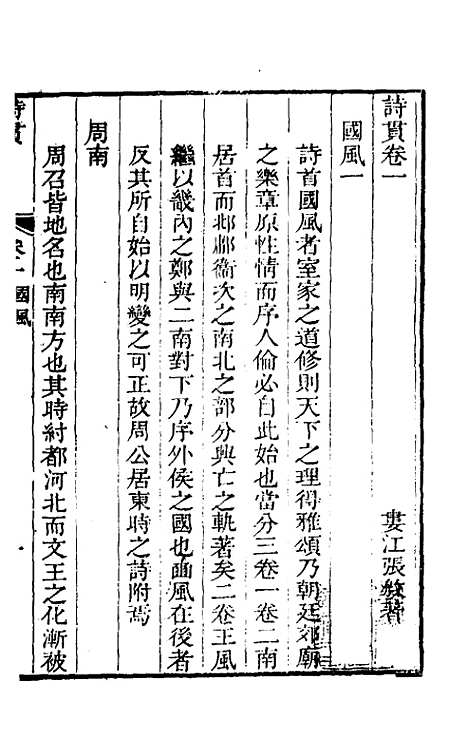 詩貫卷一
婁江張敘著
國風一
詩首國風者室家之道修則天下之理得雅頌乃朝廷郊廟
之樂章原性情而序人倫必自此始也當分三卷一卷二南
居首而邶鄘衞次之南北之部分興亡之軌著矣二卷王風
繼以畿內之鄭與二南對下乃序外侯之國也豳風在後者
反其所自始以明變之可正故周公居東時之詩附焉
周南
周召皆地名也南南方也其時紂都河北而文王之化漸被
詩貫
卷一 國風